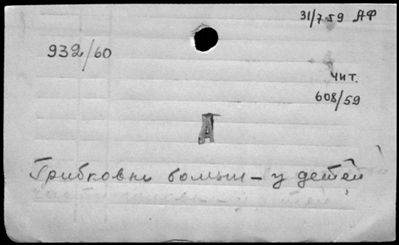 31/7 59 АФ
932/60
чит.
608/59
А
Грибковые - у детей